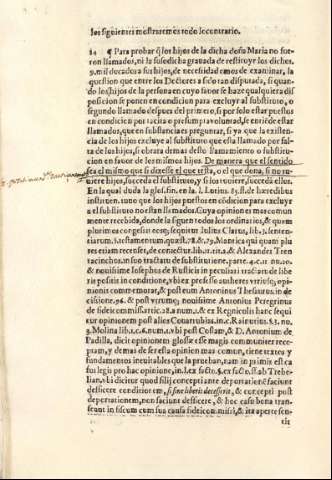 los siguientes mostraremos todo lo contrario.
14 ¶ Para probar q̃ los hijos de la dicha doña Maria no fue-
ron llamados, ni la susodicha gravada de restituyr los dichos
mil ducados a sus hijos, de necessidad emos de examinar, la
question que entre los Doctores a sido tan disputada, si quan-
do los hijos de la persona en cuyo favor se haze qualquiera dis-
posicion se ponen en condicion para excluyr al substituto, o
segundo llamado despues del primero, si por solo estar puestos
en condicion por tacita o presumpta voluntad, se entiẽde estar
llamados, que en substancia es preguntar, si ya que la existen-
cia de los hijos excluye al substituto que esta llamado por fal-
ta de los hijos, si obrara demas desto llamamiento o substitu-
cion en favor de los mismos hijos. De manera que el sentido
sea el mismo que si dixesse el que testa, o el que dona, si no tu-
uiere hijos, succeda el substituto, y si los tuuiere, succedã ellos.
En la qual duda la glos. fin. en la l. Lutius. 85. ff. de hæredibus
instituen. tuuo que los hijos puestos en cõdicion para excluyr
a el substituto no estan llamados. Cuya opinion es mas comun
mente recebida, donde la siguen todos los ordinarios, & quam
plurimos congesserat eam; sequitur Iulius Clarus, lib. 3. senten-
tiarum. §. testamentum. quæst. 78. & 79. Mantica qui quam plu
res etiam recenset, de coniectur. lib. 11. tit. 2. & Alexander Tren
tacinchos. in suo tractatu de substitutione. parte. 4. c. 11. nu. 10.
& nouissime Iosephus de Rusticis in peculiari tractatu de libe
ris positis in conditione, vbi ex professo authores vtriusq; opi-
nionis commemorat, & post eum Antonius Thesaurus. in de
cisione. 96. & postremo; nouissime Antonius Peregrinus
de fideicommissis artic. 28. a num. 1. & ex Regnicolis hanc sequi
tur opinionem post alios Couarrubias. in c. Rainutius. §. 3. nu.
3. Molina lib. 1. c. 6. num. 1. vbi post Costam, & D. Antonium de
Padilla, dicit opinionem glossæ esse magis communiter rece-
ptam, y demas de ser esta opinion mas comun, tiene textos y
fundamentos ineuitables que la prueban, nam in primis est ca
sus legis pro hac opinione, in l. ex facto. §. ex facto. ff. ad Trebe-
lian. vbi dicitur quod filij concepti ante deportationẽ faciunt
deficere conditionem, si sine liberis decesserit, & concepti post
deportationem, non faciunt deficere, & hoc casu bona tran-
seunt in fiscum cum sua causa fideicommissi, & ita aperte sen-
tit